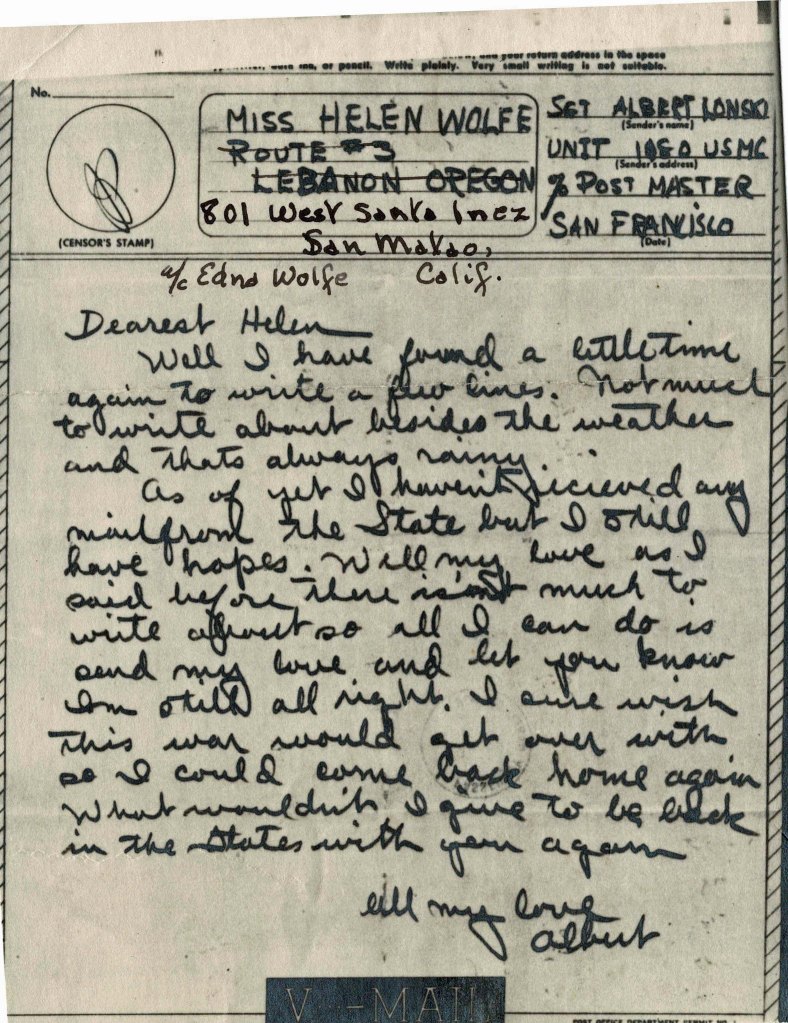 and your return address in the space
or pencil. Write plainly. Very small writing is not suitable.
No.
(CENSOR'S STAMP)
MISS HELEN WOLFE
ROUTE #3
LEBANON OREGON
801 West Santa Inez
San Mateo,
a/c Edna Wolfe Calif.
SGT ALBERT LONSKI
(Sender's name)
UNIT 1050 USMC
(Sender's address)
% POST MASTER
SAN FRANCISCO
(Date)
Dearest Helen
Well I have found a little time
again to write a few lines. Not much
to write about besides the weather
and thats always rainy.
As of yet I haven't recieved any
mail from the State but I still
have hopes. Well my love as I
said before there isn't much to
write about so all I can do is
send my love and let you know
Im still all right. I sure wish
this war would get over with
so I could come back home again
What wouldn't I give to be back
in the States with you again
all my love
Albert
V--MAIL
POST OFFICE DEPARTMENT PERMIT NO. 1